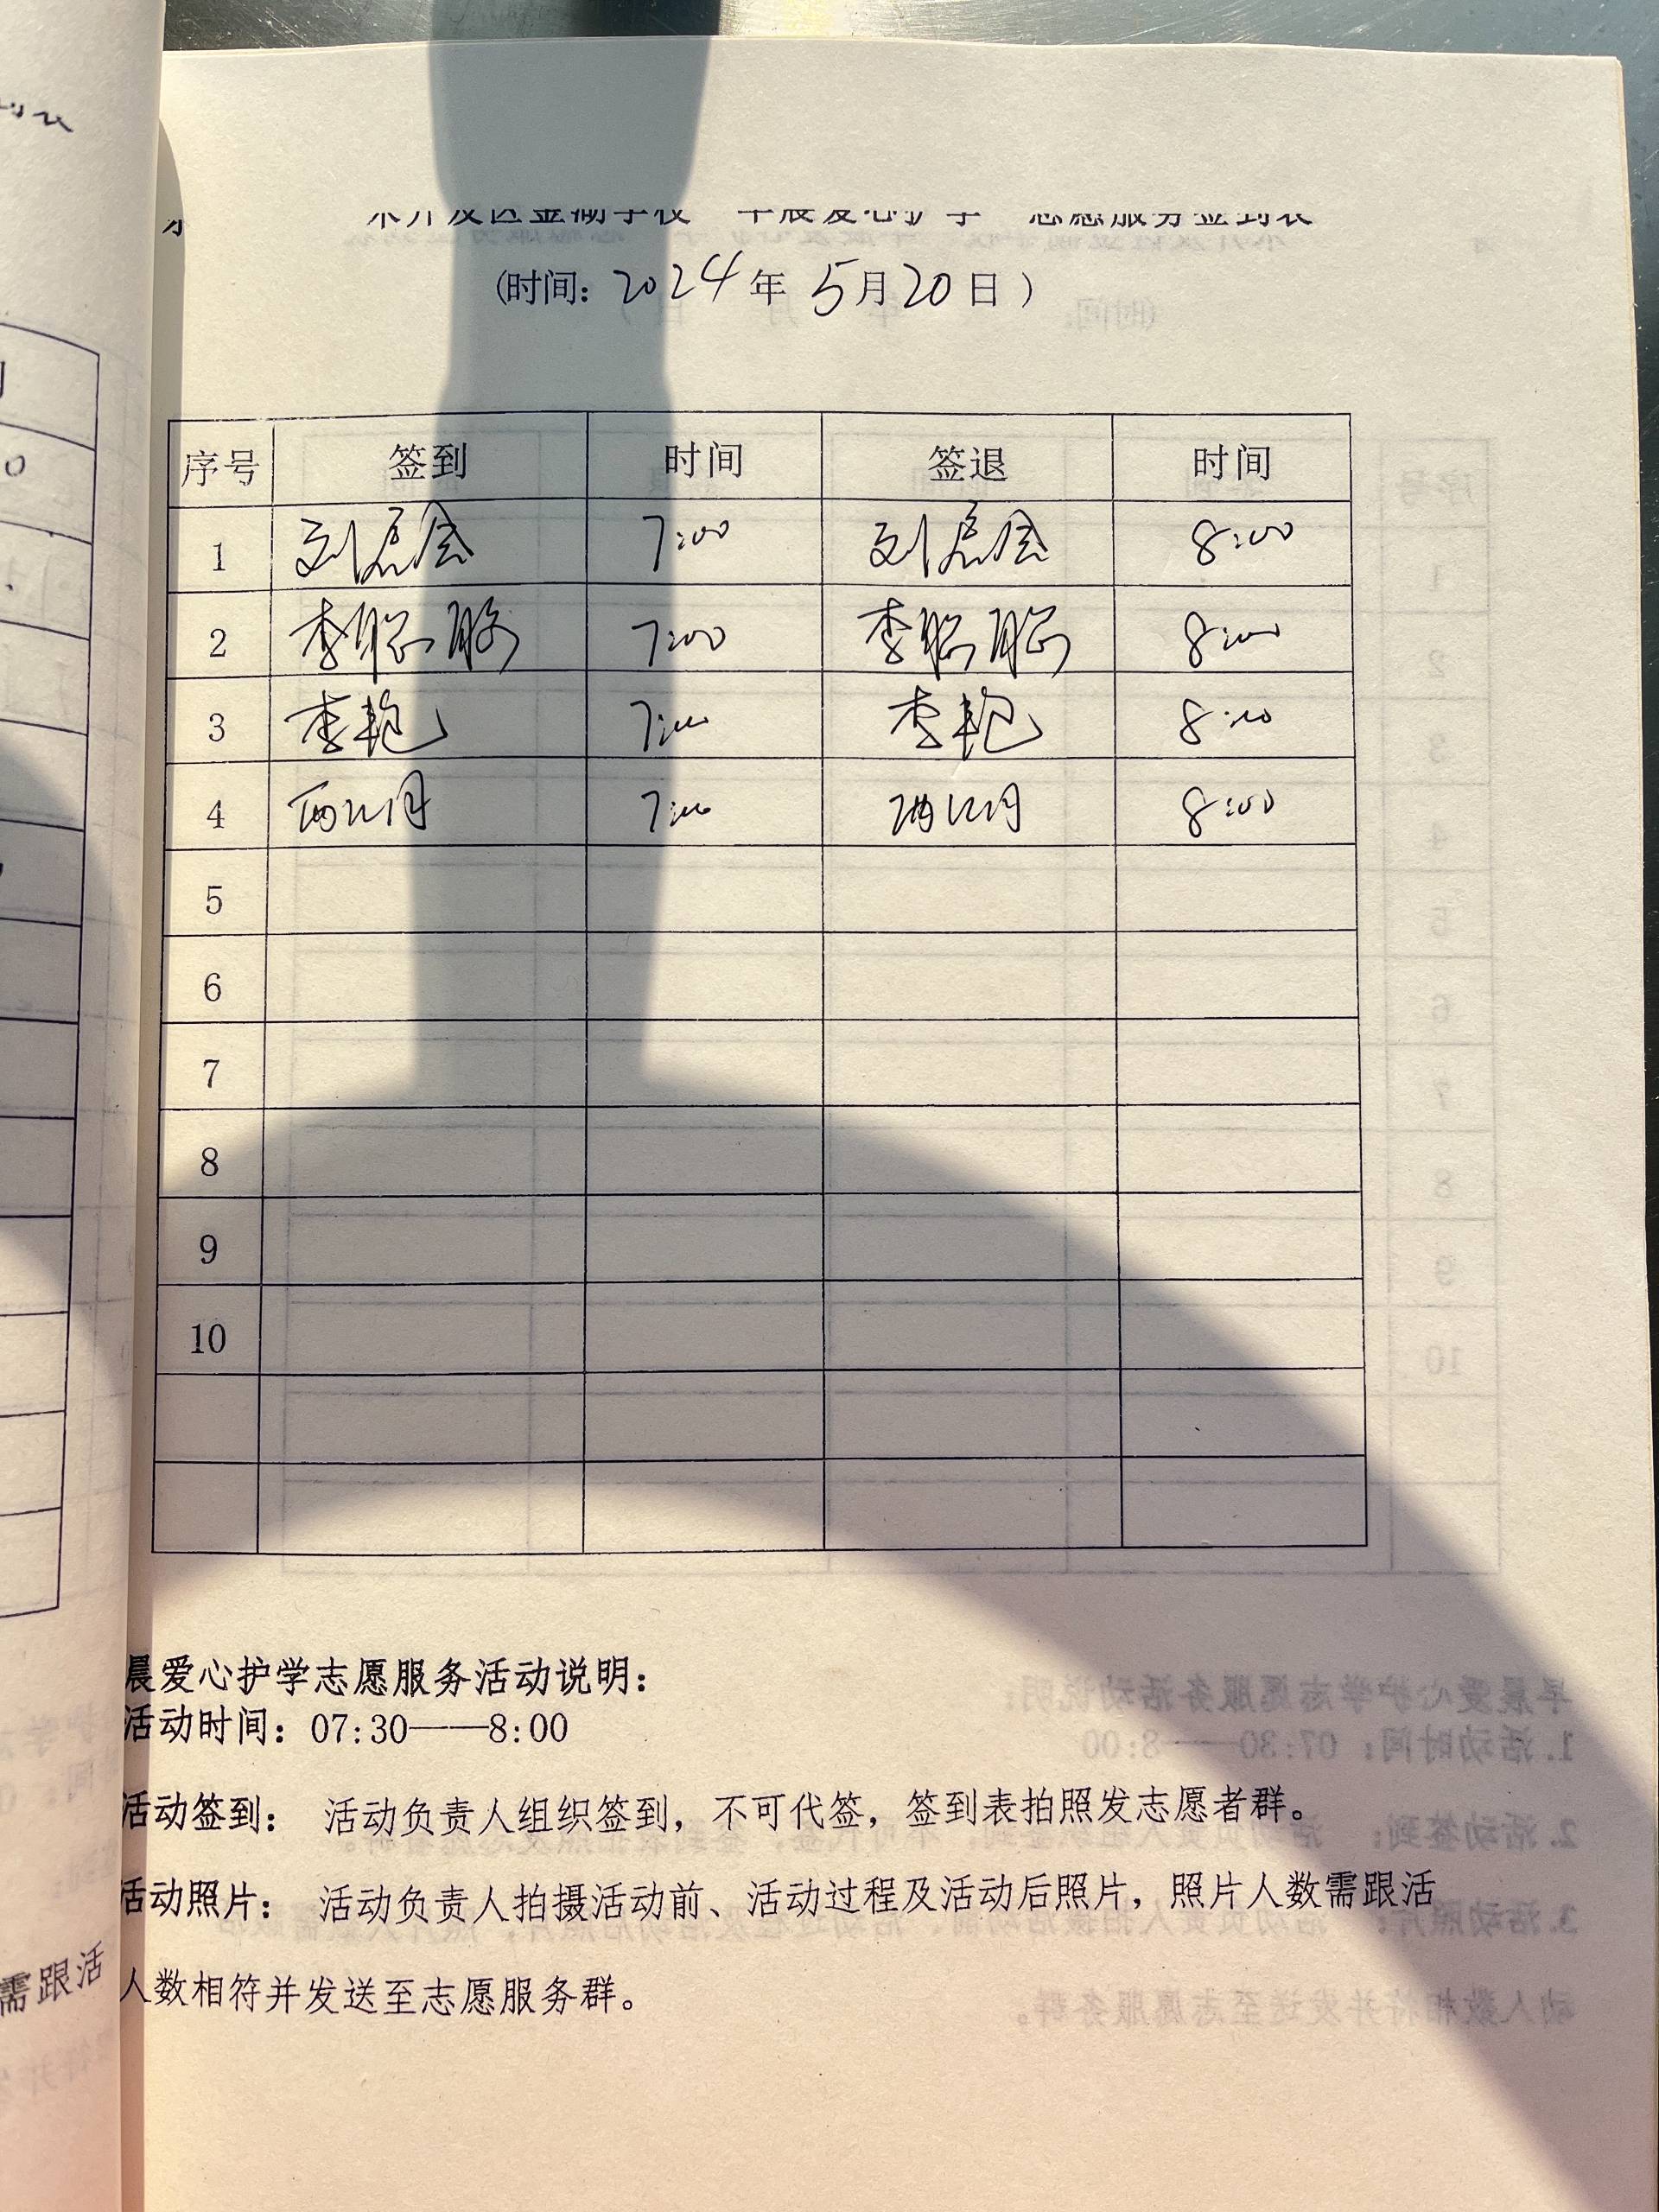 开发区金湖学校 早晨爱心护学 志愿服务签到表
(时间: 2024年5月20日)
序号 签到 时间 签退 时间
1 7:00 8:00
2 李 7:00 李 8:00
3 李艳 7:00 李艳 8:00
4 7:00 8:00
5
6
7
8
9
10
晨爱心护学志愿服务活动说明:
活动时间: 07:30——8:00
活动签到: 活动负责人组织签到, 不可代签, 签到表拍照发志愿者群。
活动照片: 活动负责人拍摄活动前、活动过程及活动后照片, 照片人数需跟活
人数相符并发送至志愿服务群。
需跟活